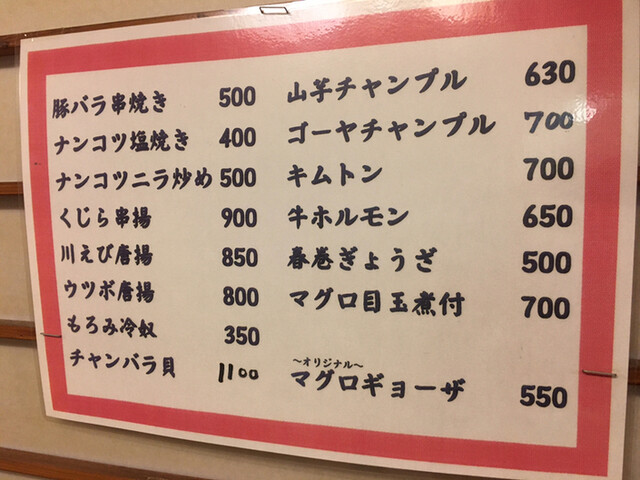 豚バラ串焼き 500
ナンコツ塩焼き 400
ナンコツニラ炒め 500
くじら串揚 900
川えび唐揚 850
ウツボ唐揚 800
もろみ冷奴 350
チャンバラ貝 1100
山芋チャンプル 630
ゴーヤチャンプル 700
キムトン 700
牛ホルモン 650
春巻ぎょうざ 500
マグロ目玉煮付 700
〜オリジナル〜
マグロギョーザ 550